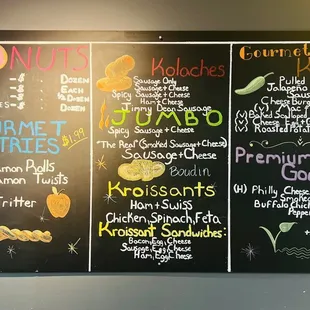 ONUTS
Dozen
Each
1/2 Dozen
URMET
TRIES
$1.99
amon Rolls
amon Twists
Fritter
Kolaches
Sausage Only
Sausage + Cheese
Spicy Sausage + Cheese
Ham + Cheese
Jimmy Dean Sausage
JUMBO
Spicy Sausage + Cheese
"The Real" (Smoked Sausage + Cheese)
Sausage + Cheese
Boudin
Kroissants
Ham + Swiss
Chicken, Spinach, Feta
Kroissant Sandwiches:
Bacon, Egg, Cheese
Sausage, Egg, Cheese
Ham, Egg, Cheese
Gourmet
K
Pulled
Jalapeno
Saus
Cheese Burg
(V) Mac +
(V) Baked Scalloped
(V) Cheese, Egg + C
(V) Roasted Potat
Premium
Goo
(H) Philly Cheese
Smoke
Buffalo Chick
Pepper